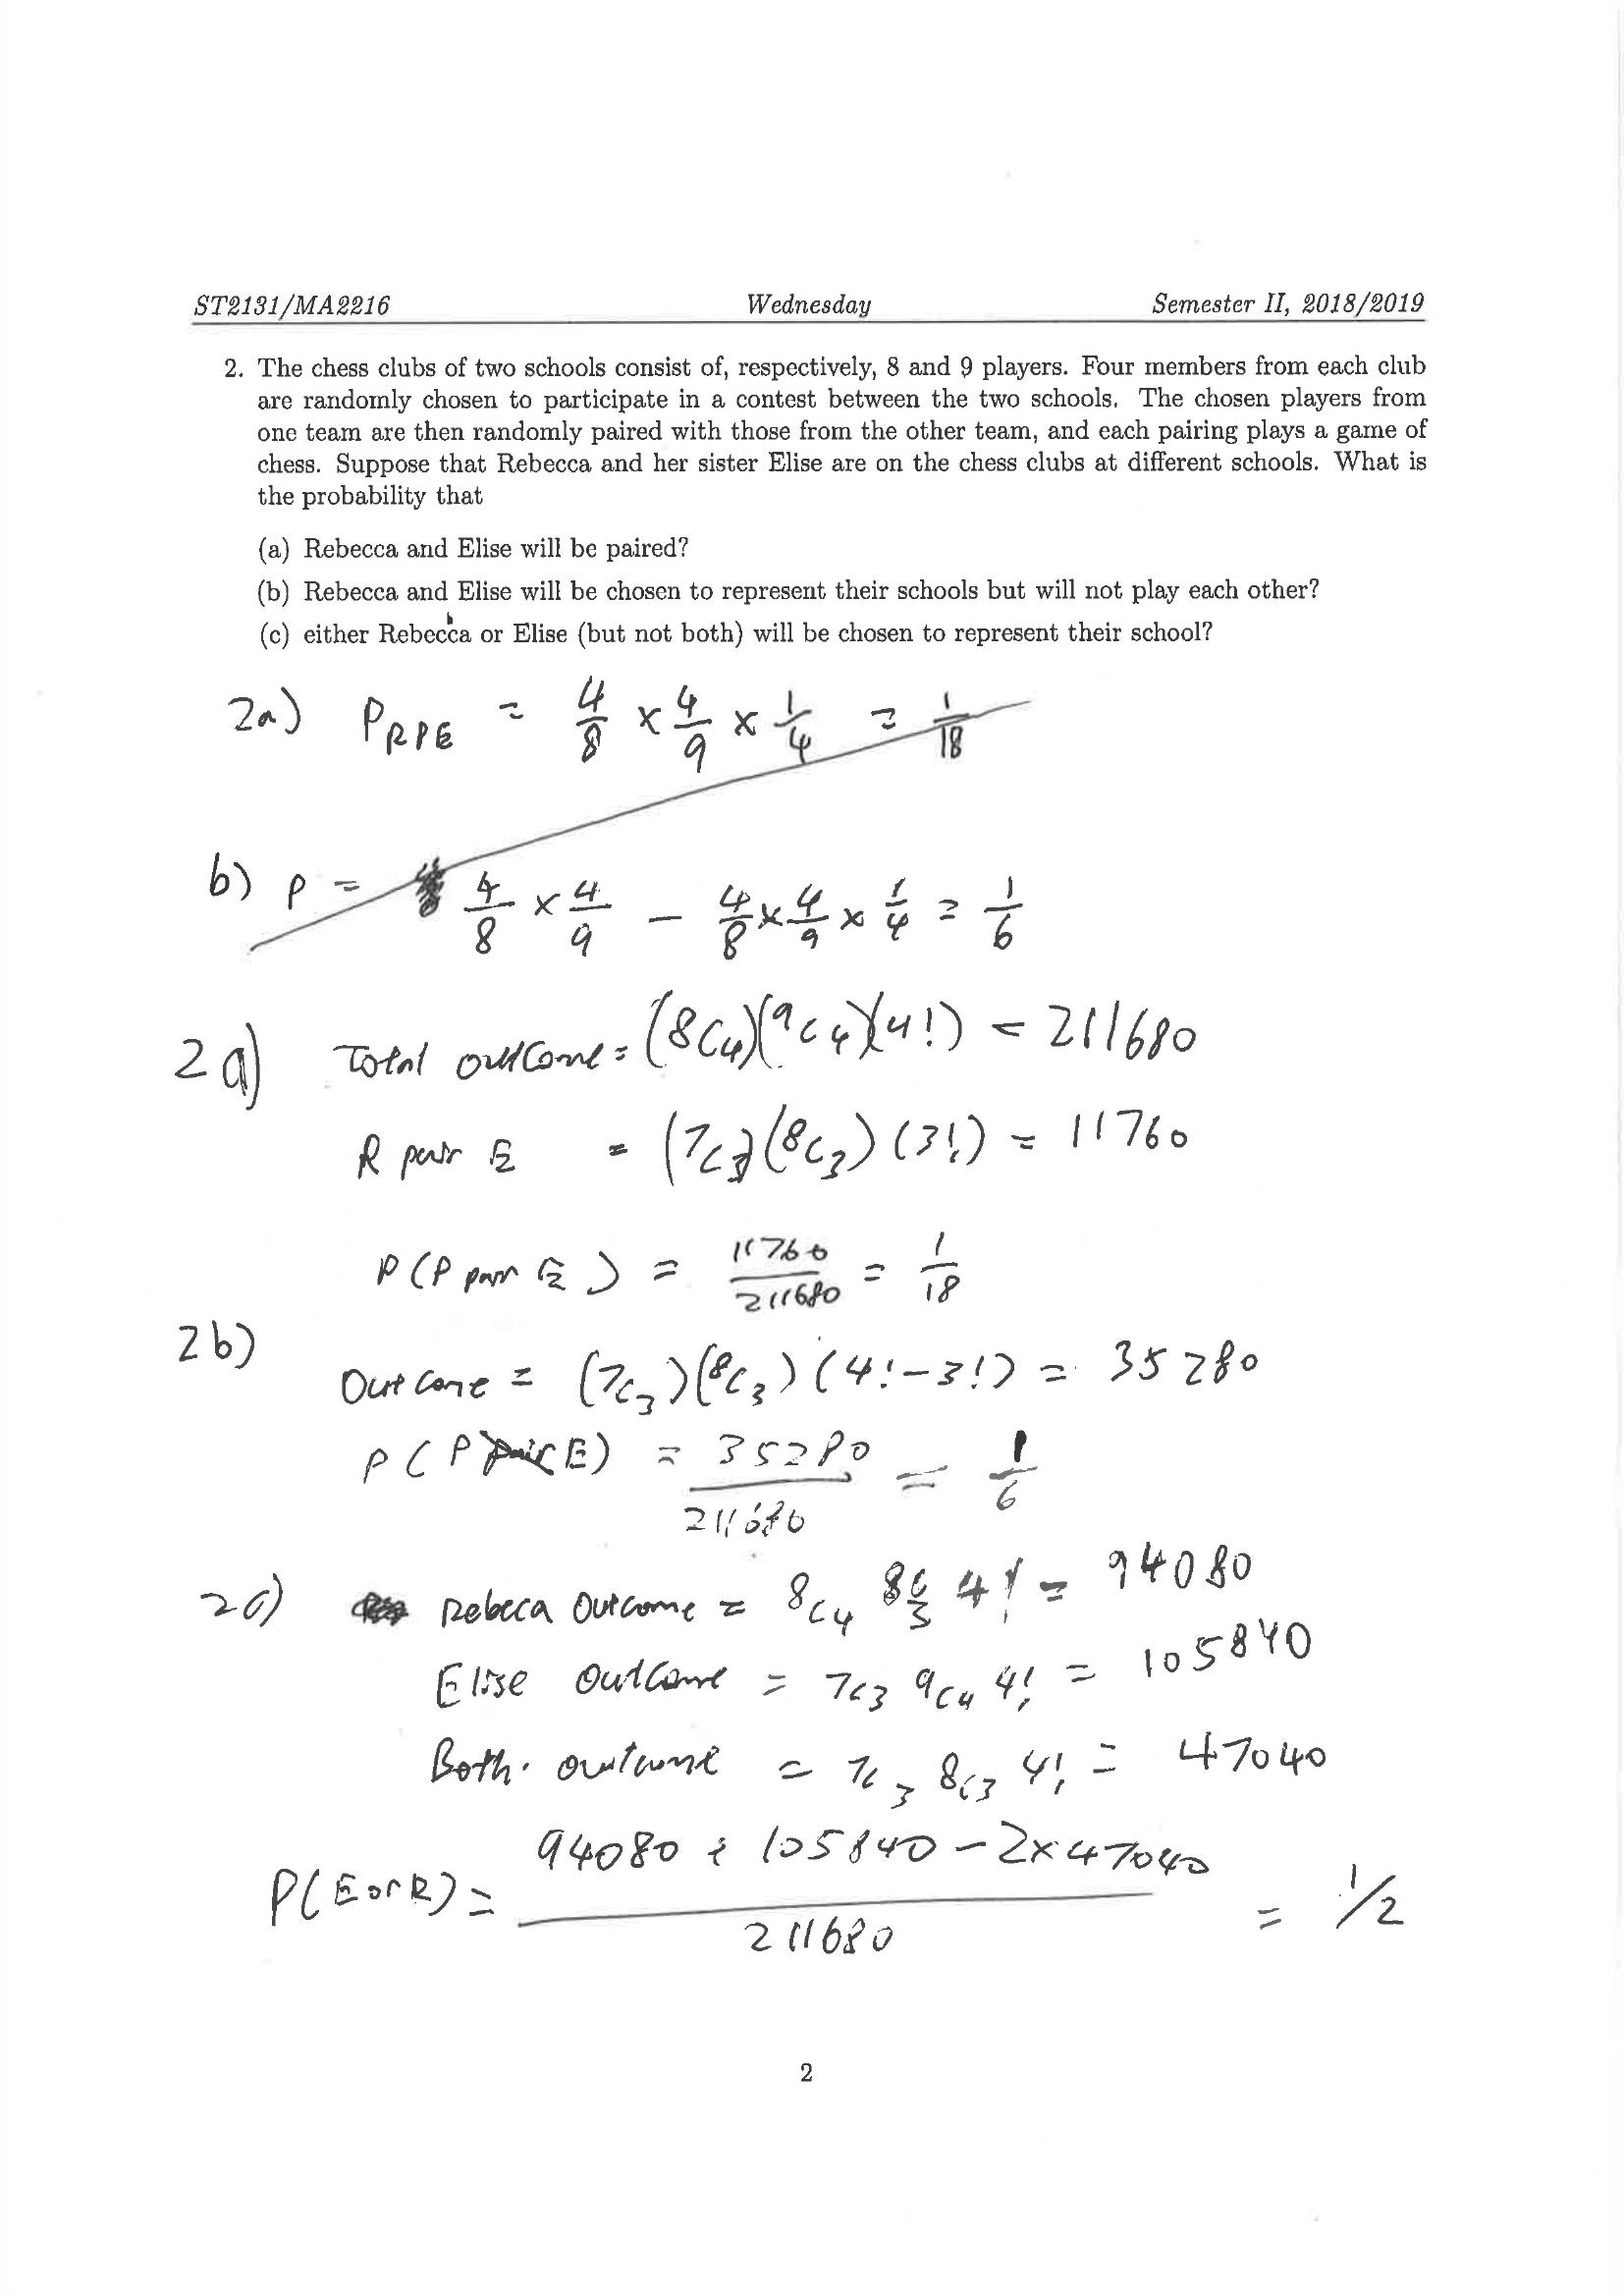 ST2131/MA2216 Wednesday Semester II, 2018/2019
2. The chess clubs of two schools consist of, respectively, 8 and 9 players. Four members from each club
are randomly chosen to participate in a contest between the two schools. The chosen players from
one team are then randomly paired with those from the other team, and each pairing plays a game of
chess. Suppose that Rebecca and her sister Elise are on the chess clubs at different schools. What is
the probability that
(a) Rebecca and Elise will be paired?
(b) Rebecca and Elise will be chosen to represent their schools but will not play each other?
(c) either Rebecca or Elise (but not both) will be chosen to represent their school?
2a) P_RPE = 4/8 × 4/9 × 1/4 = 1/18
b) P = 4/8 × 4/9 - 4/8 × 4/9 × 1/4 = 1/6
2a) Total outcome = (8C4)(9C4)(4!) = 211680
R pair E = (7C3)(8C3)(3!) = 11760
P(P pair E) = 11760/211680 = 1/18
2b)
Outcome = (7C3)(8C3)(4!-3!) = 35280
P(P pair E) = 35280/211680 = 1/6
2c) Rebeca Outcome = 8C4 8C3 4! = 94080
Elise Outcome = 7C3 9C4 4! = 105840
Both. outcome = 7C3 8C3 4! = 47040
P(E or R) = 94080 + 105840 - 2×47040 / 211680 = 1/2
2